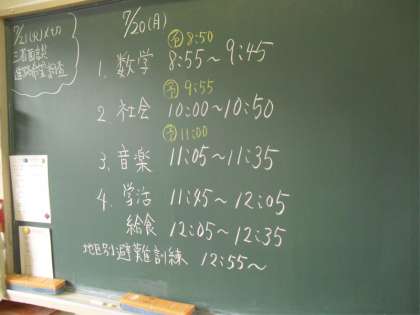 7/21(火)〆切
三者面談
進路希望調査
7/20(月)
予 8:50
1. 数学 8:55〜9:45
予 9:55
2 社会 10:00〜10:50
予 11:00
3. 音楽 11:05〜11:35
4. 学活 11:45〜12:05
給食 12:05〜12:35
地区別避難訓練 12:55〜